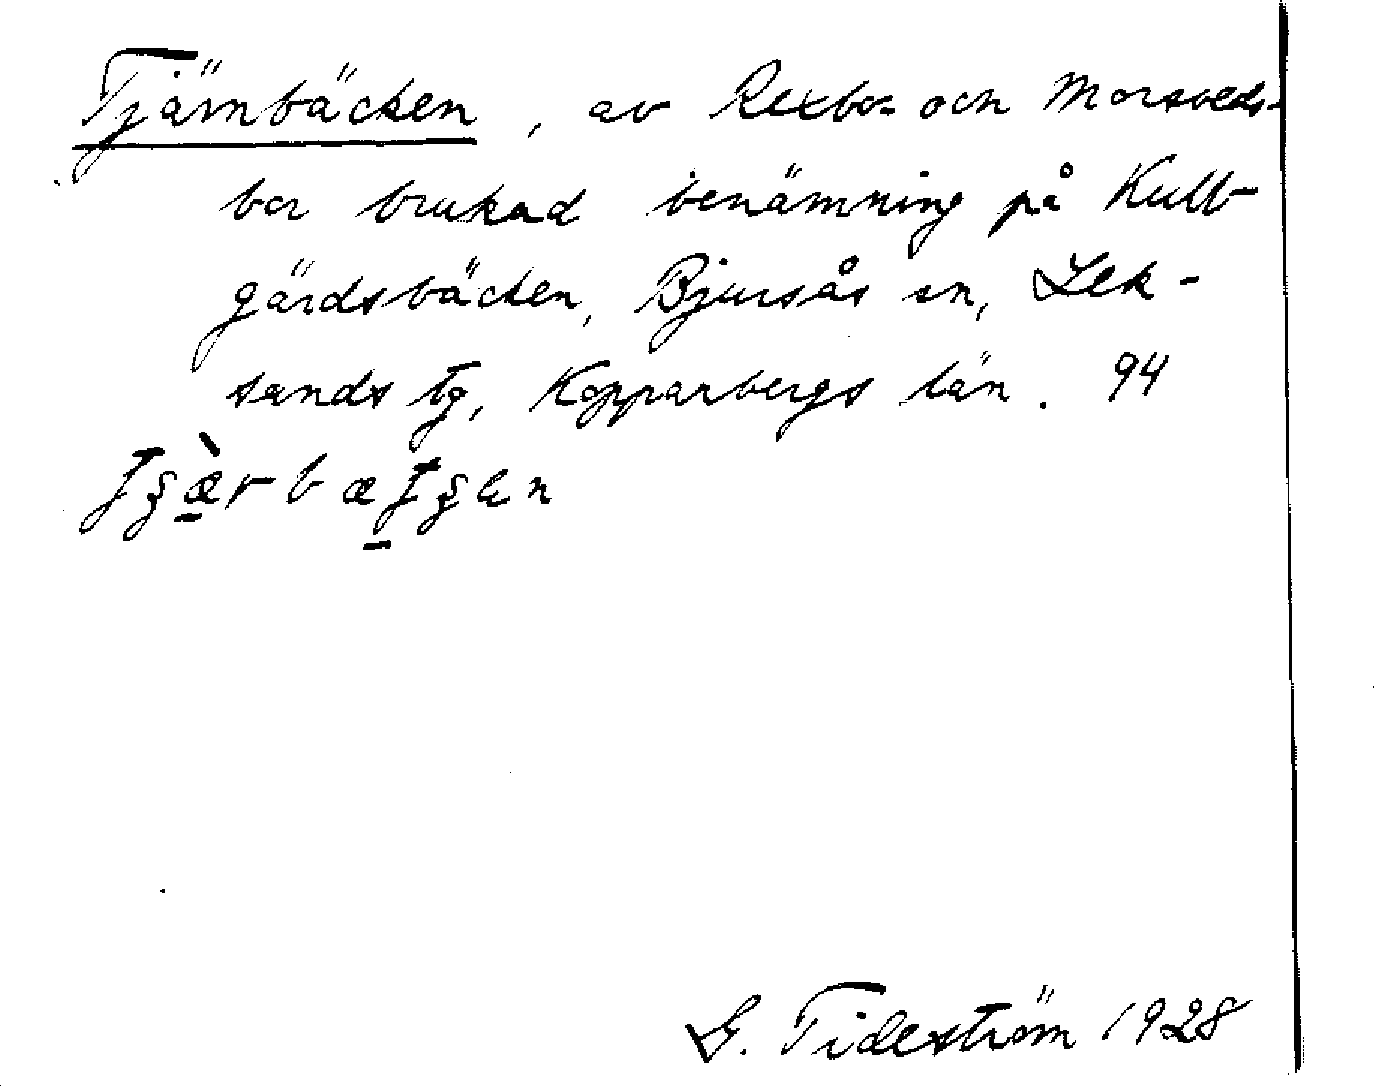 Tjärnbäcken, av Rexbo- och Morsveds-
bor brukad benämning på Kull-
gärdsbäcken, Bjursås sn, Lek-
sands tg, Kopparbergs län. 94
G. Tideström 1928